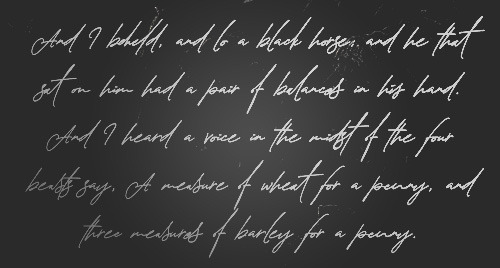 And I beheld, and lo a black horse; and he that
sat on him had a pair of balances in his hand.
And I heard a voice in the midst of the four
beasts say, A measure of wheat for a penny, and
three measures of barley for a penny.